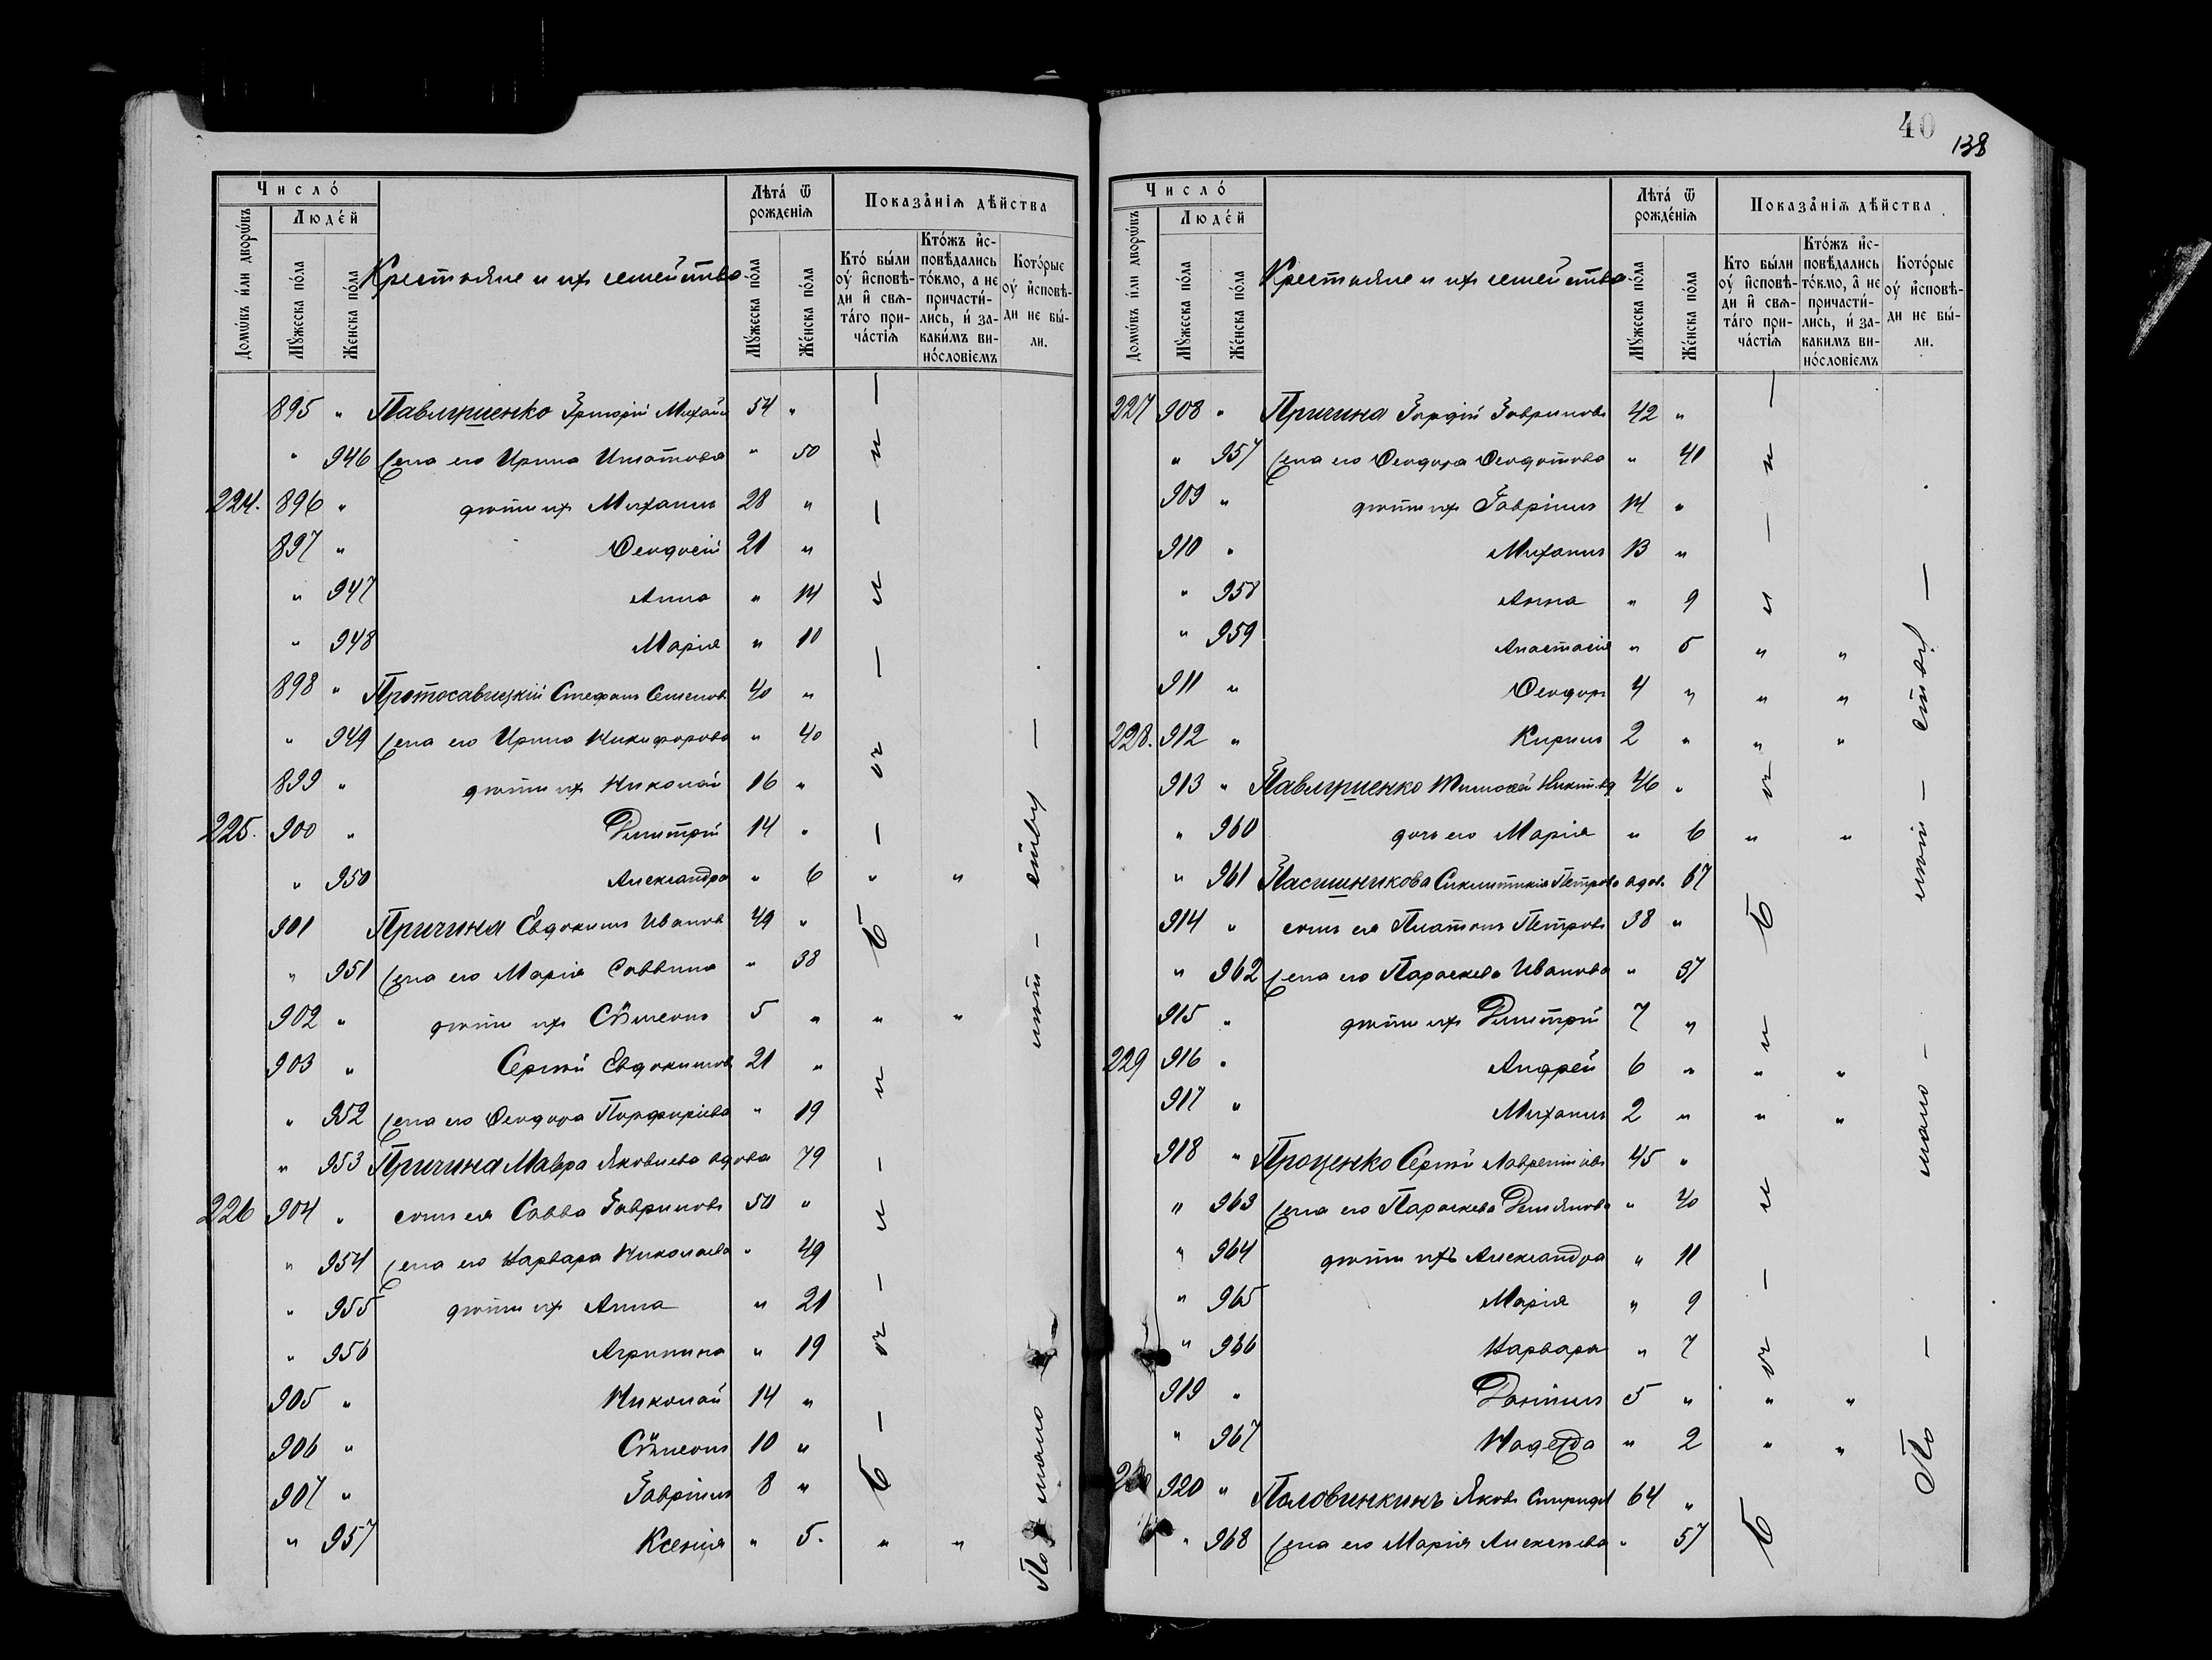 Число́
Люде́й
Домѡ́въ и҆ли дворѡ́въ
Мꙋ́жеска по́ла
Же́нска по́ла
Крестьяне и ихъ семейства
Лѣта́ ѿ рожде́нїѧ
Мꙋ́жеска по́ла
Же́нска по́ла
Показа̑нїѧ дѣ́йства
Кто́ бы́ли оу҆ и҆сповѣ-
ди и҆ свѧ-
та́го при-
ча́стїѧ
Кто́жъ и҆с-
повѣ́дались
то́кмо, а не
причасти́-
лись, и҆ за-
каки́мъ ви-
носло́вїемъ
Кото́рые
оу҆ и҆сповѣ-
ди не бы́-
ли.
895 " Павлушенко Григорій Михайл 54 "
" 946 жена его Ирина Игнатова " 50
224. 896 " дѣти ихъ Михаилъ 28 "
897 " Ѳеодосій 21 "
" 947 Анна " 14
" 948 Марія " 10
898 " Протосавицкій Стефанъ Семенов 40 "
" 949 жена его Ирина Никифорова " 40
899 " дѣти ихъ Николай 16 "
225. 900 " Димитрій 14 "
" 950 Александра " 6 " "
901 Причина Евдокимъ Иванов 49 "
" 951 жена его Марія Саввина " 38
902 " дѣти ихъ Сѵмеонъ 5 " " "
903 " Сергѣй Евдокимов 21 "
" 952 жена его Ѳеодора Порфиріева " 19
" 953 Причина Мавра Яковлева вдова 79
226 904 " сынъ ея Савва Гавриловъ 50 "
" 954 жена его Варвара Николаева " 49
" 955 дѣти ихъ Анна " 21
" 956 Агрипина " 19
905 " Николай 14 "
906 " Сѵмеонъ 10 "
907 " Гавріилъ 8 "
" 957 Ксенія " 5. " "
Б — ы — л — и
По мало — лѣт — ству —
40
138
Число́
Люде́й
Домѡ́въ и҆ли дворѡ́въ
Мꙋ́жеска по́ла
Же́нска по́ла
Крестьяне и ихъ семейства
Лѣта́ ѿ рожде́нїѧ
Мꙋ́жеска по́ла
Же́нска по́ла
Показа̑нїѧ дѣ́йства
Кто бы́ли
оу҆ и҆сповѣ́-
ди и҆ свѧ-
та́го при-
ча́стїѧ
Кто́жъ и҆с-
повѣ́дались
то́кмо, а не
причасти́-
лись, и҆ за-
каки́мъ ви-
носло́вїемъ
Кото́рые
оу҆ и҆сповѣ-
ди не бы́-
ли.
227 908 " Причина Гордій Гавриловъ 42 "
" 957 жена его Ѳеодора Ѳеодотова " 41
909 " дѣти ихъ Гавріилъ 14 "
910 " Михаилъ 13 "
" 958 Анна " 9
" 959 Анастасія " 5 " "
911 " Ѳеодоръ 4 " " "
228. 912 " Кирилъ 2 " " "
913 " Павлушенко Тимоѳей Никитовъ 46 "
" 960 дочь его Марія " 6 " "
" 961 Пасишникова Синклитикія Петрова вдова 67
914 " сынъ ея Платонъ Петровъ 38 "
" 962 жена его Параскева Иванова " 37
915 " дѣти ихъ Димитрій 7 "
229 916 " Андрей 6 " " "
917 " Михаилъ 2 " " "
918 " Проценко Сергѣй Лаврентіевъ 45 "
" 963 жена его Параскева Демьянова " 40
" 964 дѣти ихъ Александра " 11
" 965 Марія " 9
" 966 Варвара " 7
919 " Даніилъ 5 " " "
" 967 Надежда " 2 " "
920 " Половинкинъ Яковъ Спирид 64 "
" 968 жена его Марія Алексѣева " 57
Б — ы — л — и
По — мало — лѣт — ству —